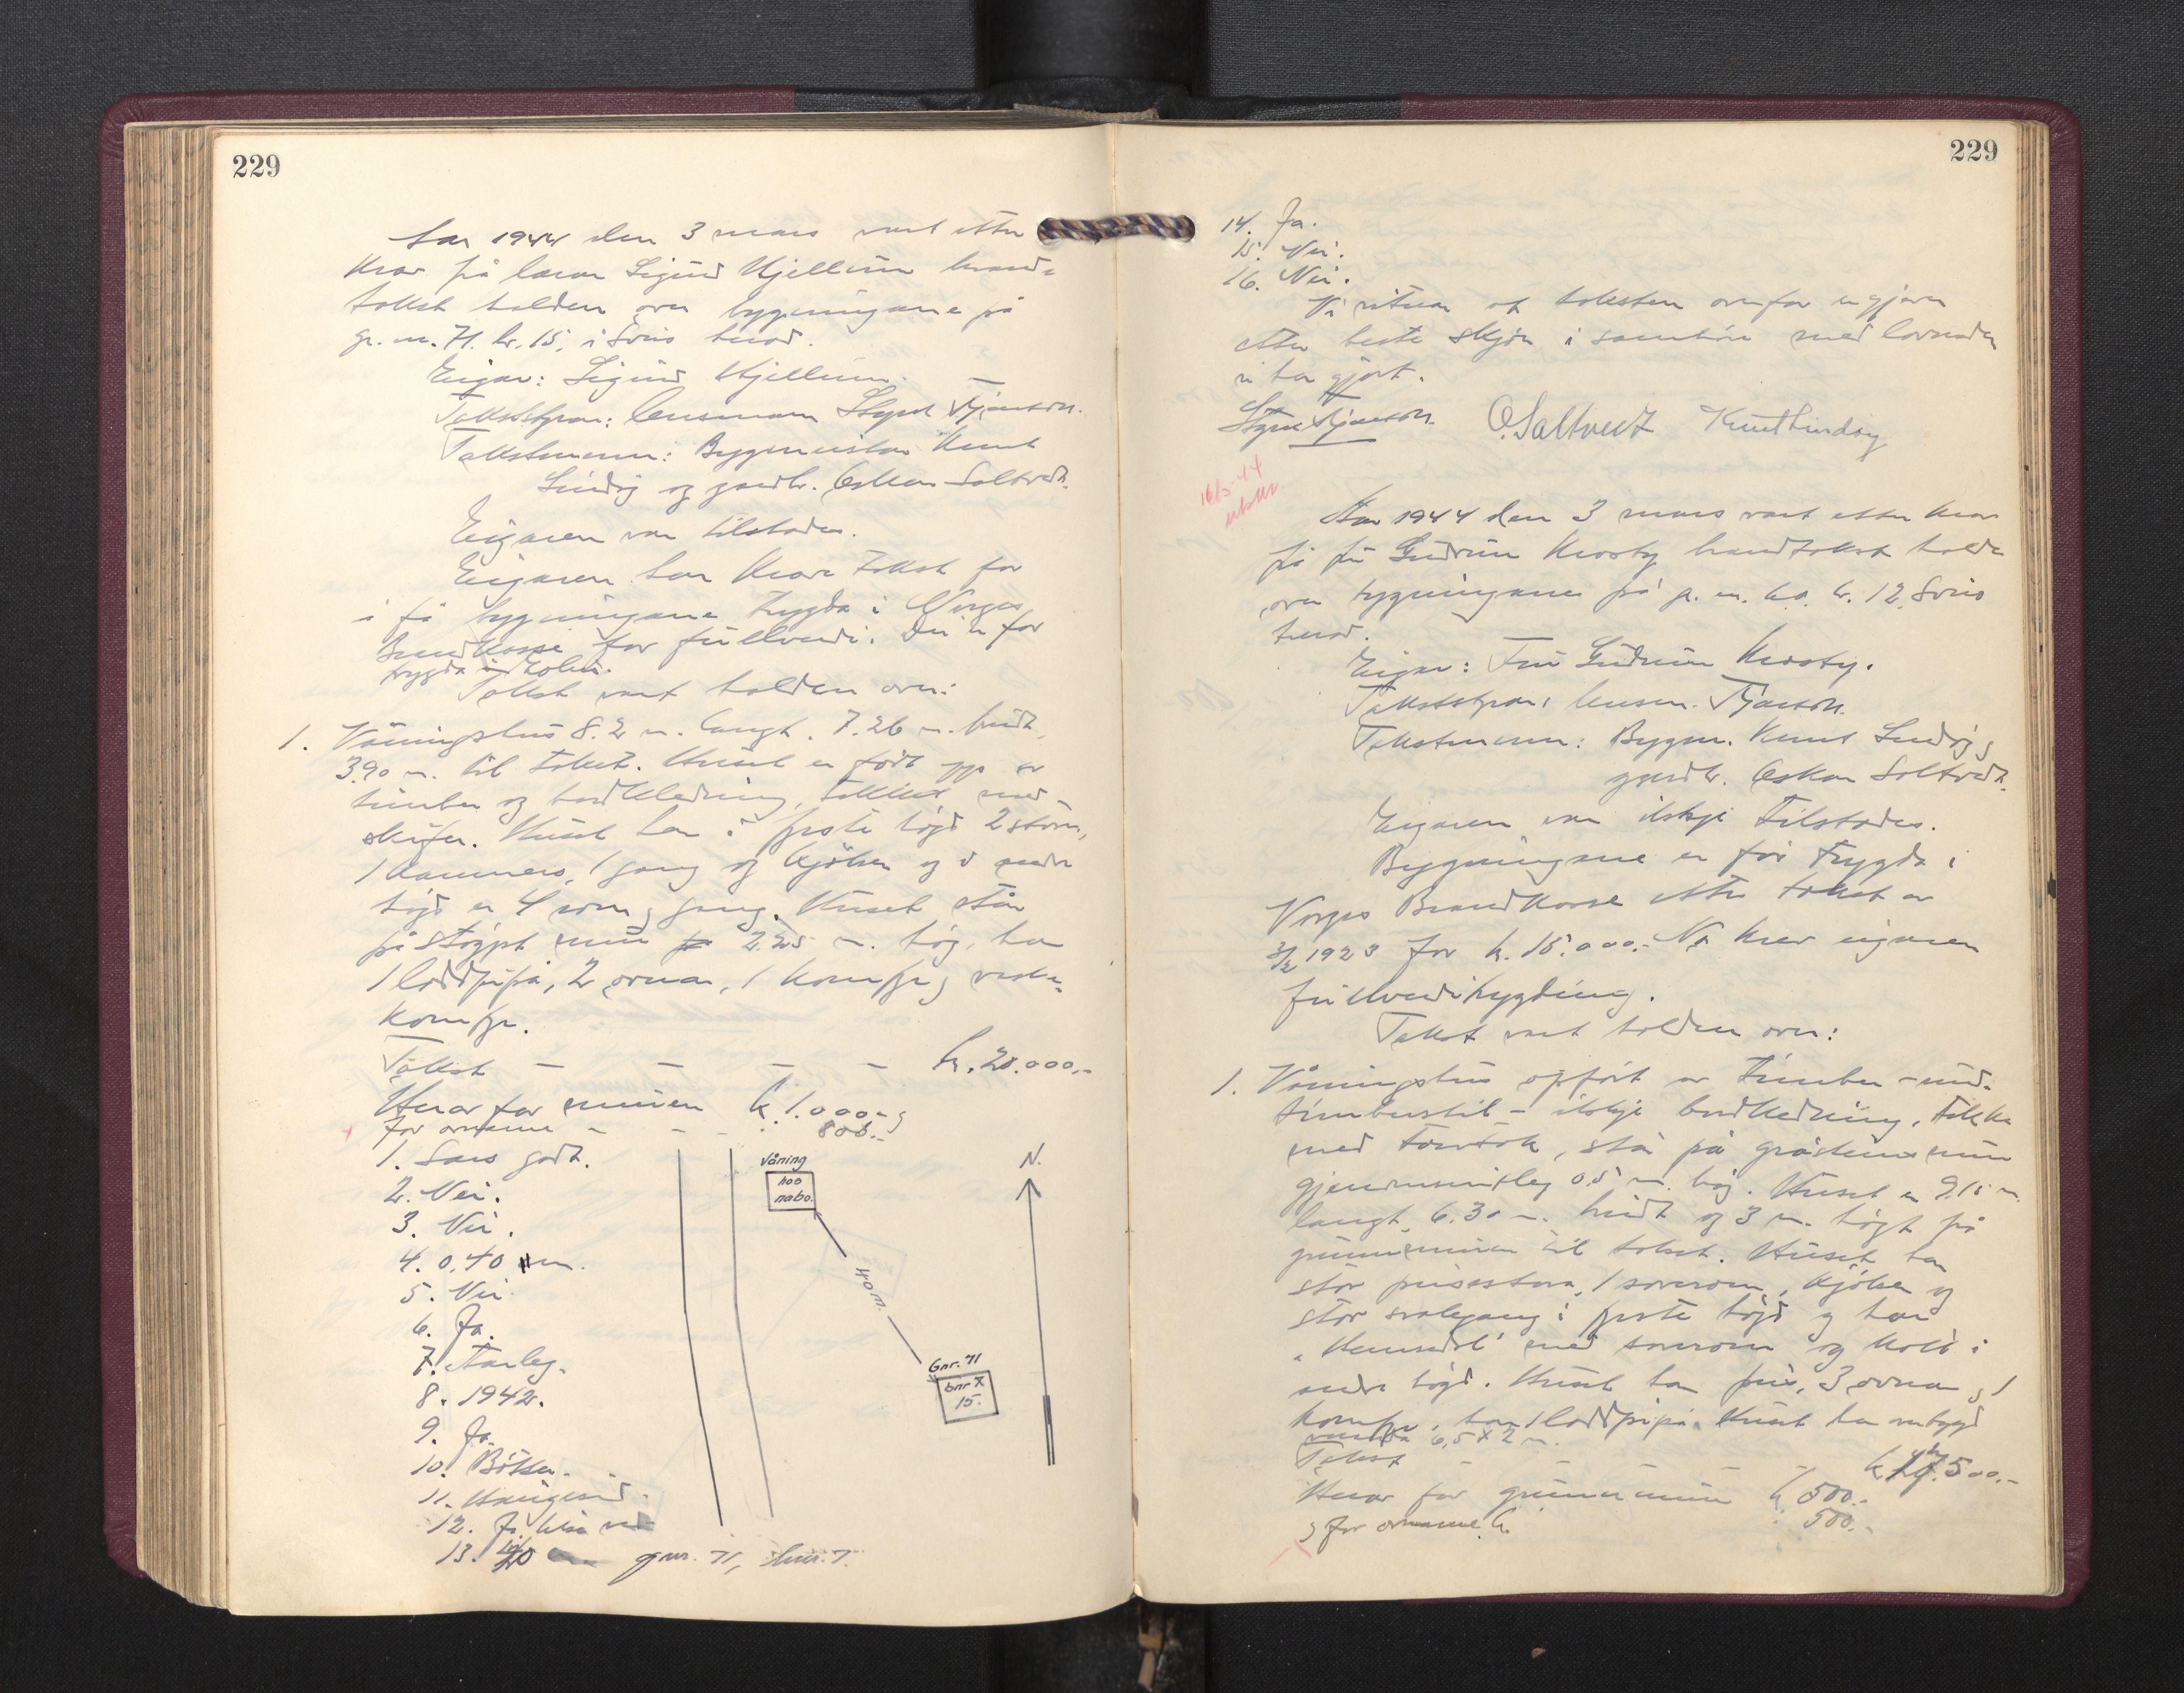 229
Aar 1944 den 3 mars vart etter
krav på lærar Sigurd Kjellum brand-
takst halden over bygningane på
gr. nr. 71. br. 15, i herad.
Eigar: Sigurd Kjellum.
Takststyrar: lensmann
Takstmenn: Byggmeister Knut
Lindøy og gardbr. Oskar Saltvedt.
Eigaren var tilstades.
Eigaren har krav takst for
å få bygningane trygda i Norges
Brandkasse for fullverdi. Dei er før
trygda
Takst vart halden over:
1. Våningshus 8.2 m. langt. 7.26 m. breidt,
3.90 m. til taket. Huset er ført opp av
timber og bordkledning, tekkt med
skifer. Huset har i fyrste høgd 2 stover,
1 kammers, 1 gang og kjøken og i andre
høgd er 4 rom og gang. Huset står
på støypt mur 2.25 m. høg, har
1 loddpipa, 2 omnar, 1 komfyr og vaske-
komfyr.
Takst — — — — kr. 20.000,-
Herav for muren kr. 1.000,- og
for omnane - - - 800.-
1. Sers godt.
2. Nei.
3. Nei.
4. 0,40 m.
5. Nei.
6. Ja.
7. Aarleg.
8. 1942.
9. Ja.
10. Bøtter.
11. Haugesund.
12. Ja.
13. gnr. 71, bnr. 7.
Våning
hos
nabo.
40 m.
Gnr. 71
bnr X
15.
N.
229
14. Ja.
15. Nei.
16. Nei.
Vi vitnar at taksten ovanfor er gjeven
etter beste skjøn i samhøve med lovnaden
vi har gjort.
O. Saltvedt Knut Lindøy
16/3-44
utskr.
Aar 1944 den 3 mars vart etter krav
frå fru Gudrun Krosby brandtakst halden
over bygningane på g. nr. 60. br. 12,
herad.
Eigar: Fru Gudrun Krosby.
Takststyrar: lensm.
Takstmenn: Byggm. Knut Lindøy og
gardbr. Oskar Saltvedt.
Eigaren var ikkje tilstades.
Bygningane er før trygda i
Norges Brandkasse etter takst av
1923 for kr. 15.000.- No krev eigaren
fullverditrygding.
Takst vart halden over:
1. Våningshus oppført av timber -
timberstil - ikkje bordkledning, tekka
med torvtak, står på gråsteinsmur
gjennomsnitleg 0.5 m. høg. Huset er 9.15 m.
langt, 6.30 m. breidt og 3 m. høgt på
grunnmuren til taket. Huset har
stor peisestova, 1 soverom, kjøken og
stor svalegang i fyrste høgd og har
med soverom og kott i
andre høgd. Huset har peis, 3 omnar og 1
komfyr, har 1 loddpipa. Huset har utbygd
6,5 x 2 m.
Takst - - - - kr. 500.-
Herav for grunnmuren kr. 500.-
og for omnane kr. 500.-